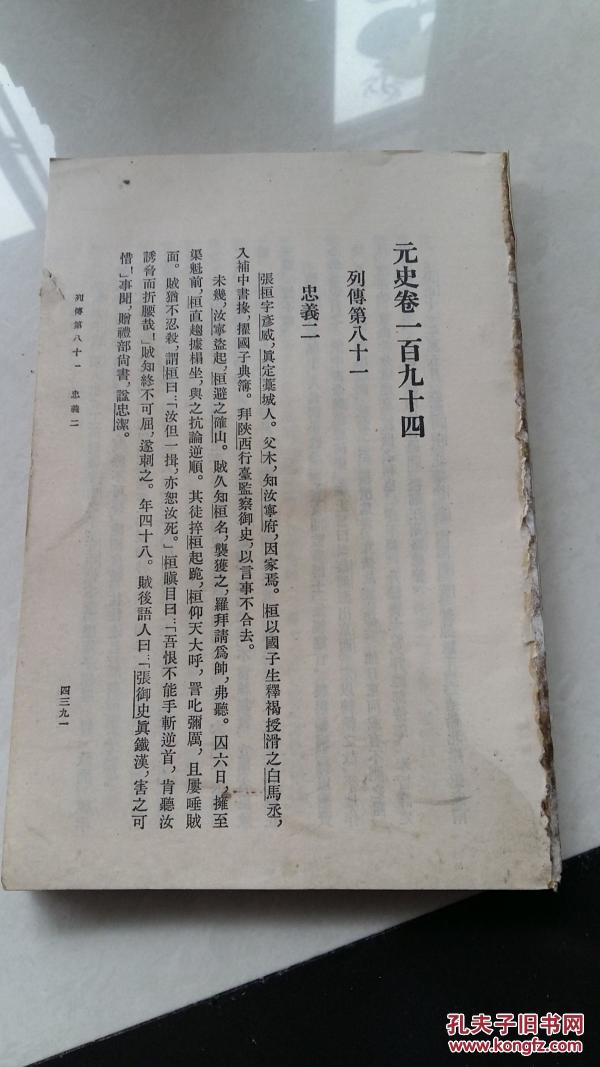 元史卷一百九十四
列傳第八十一
忠義二
張桓字彥威，眞定藁城人。父木，知汝寧府，因家焉。桓以國子生釋褐授滑之白馬丞，
入補中書掾，擢國子典簿。拜陝西行臺監察御史，以言事不合去。
未幾，汝寧盜起，桓避之確山。賊久知桓名，襲獲之，羅拜請爲帥，弗聽。囚六日，擁至
渠魁前，桓直趨據榻坐，與之抗論逆順。其徒捽桓起跪，桓仰天大呼，詈叱彌厲，且屢唾賊
面。賊猶不忍殺，謂桓曰：「汝但一揖，亦恕汝死。」桓瞋目曰：「吾恨不能手斬逆首，肯聽汝
誘脅而折腰哉！」賊知終不可屈，遂刺之。年四十八。賊後語人曰：「張御史眞鐵漢，害之可
惜！」事聞，贈禮部尚書，謚忠潔。
列傳第八十一　忠義二
四三九一
孔夫子旧书网
www.kongfz.com